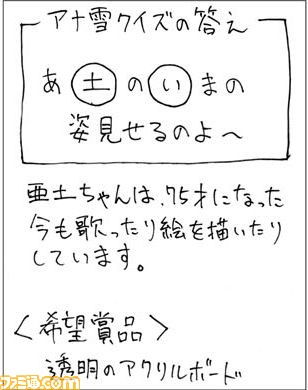 アナ雪クイズの答え
あ土のいまの
姿見せるのよ〜
亜土ちゃんは、75才になった
今も歌ったり絵を描いたり
しています。
〈希望賞品〉
透明のアクリルボード
ファミ通.com